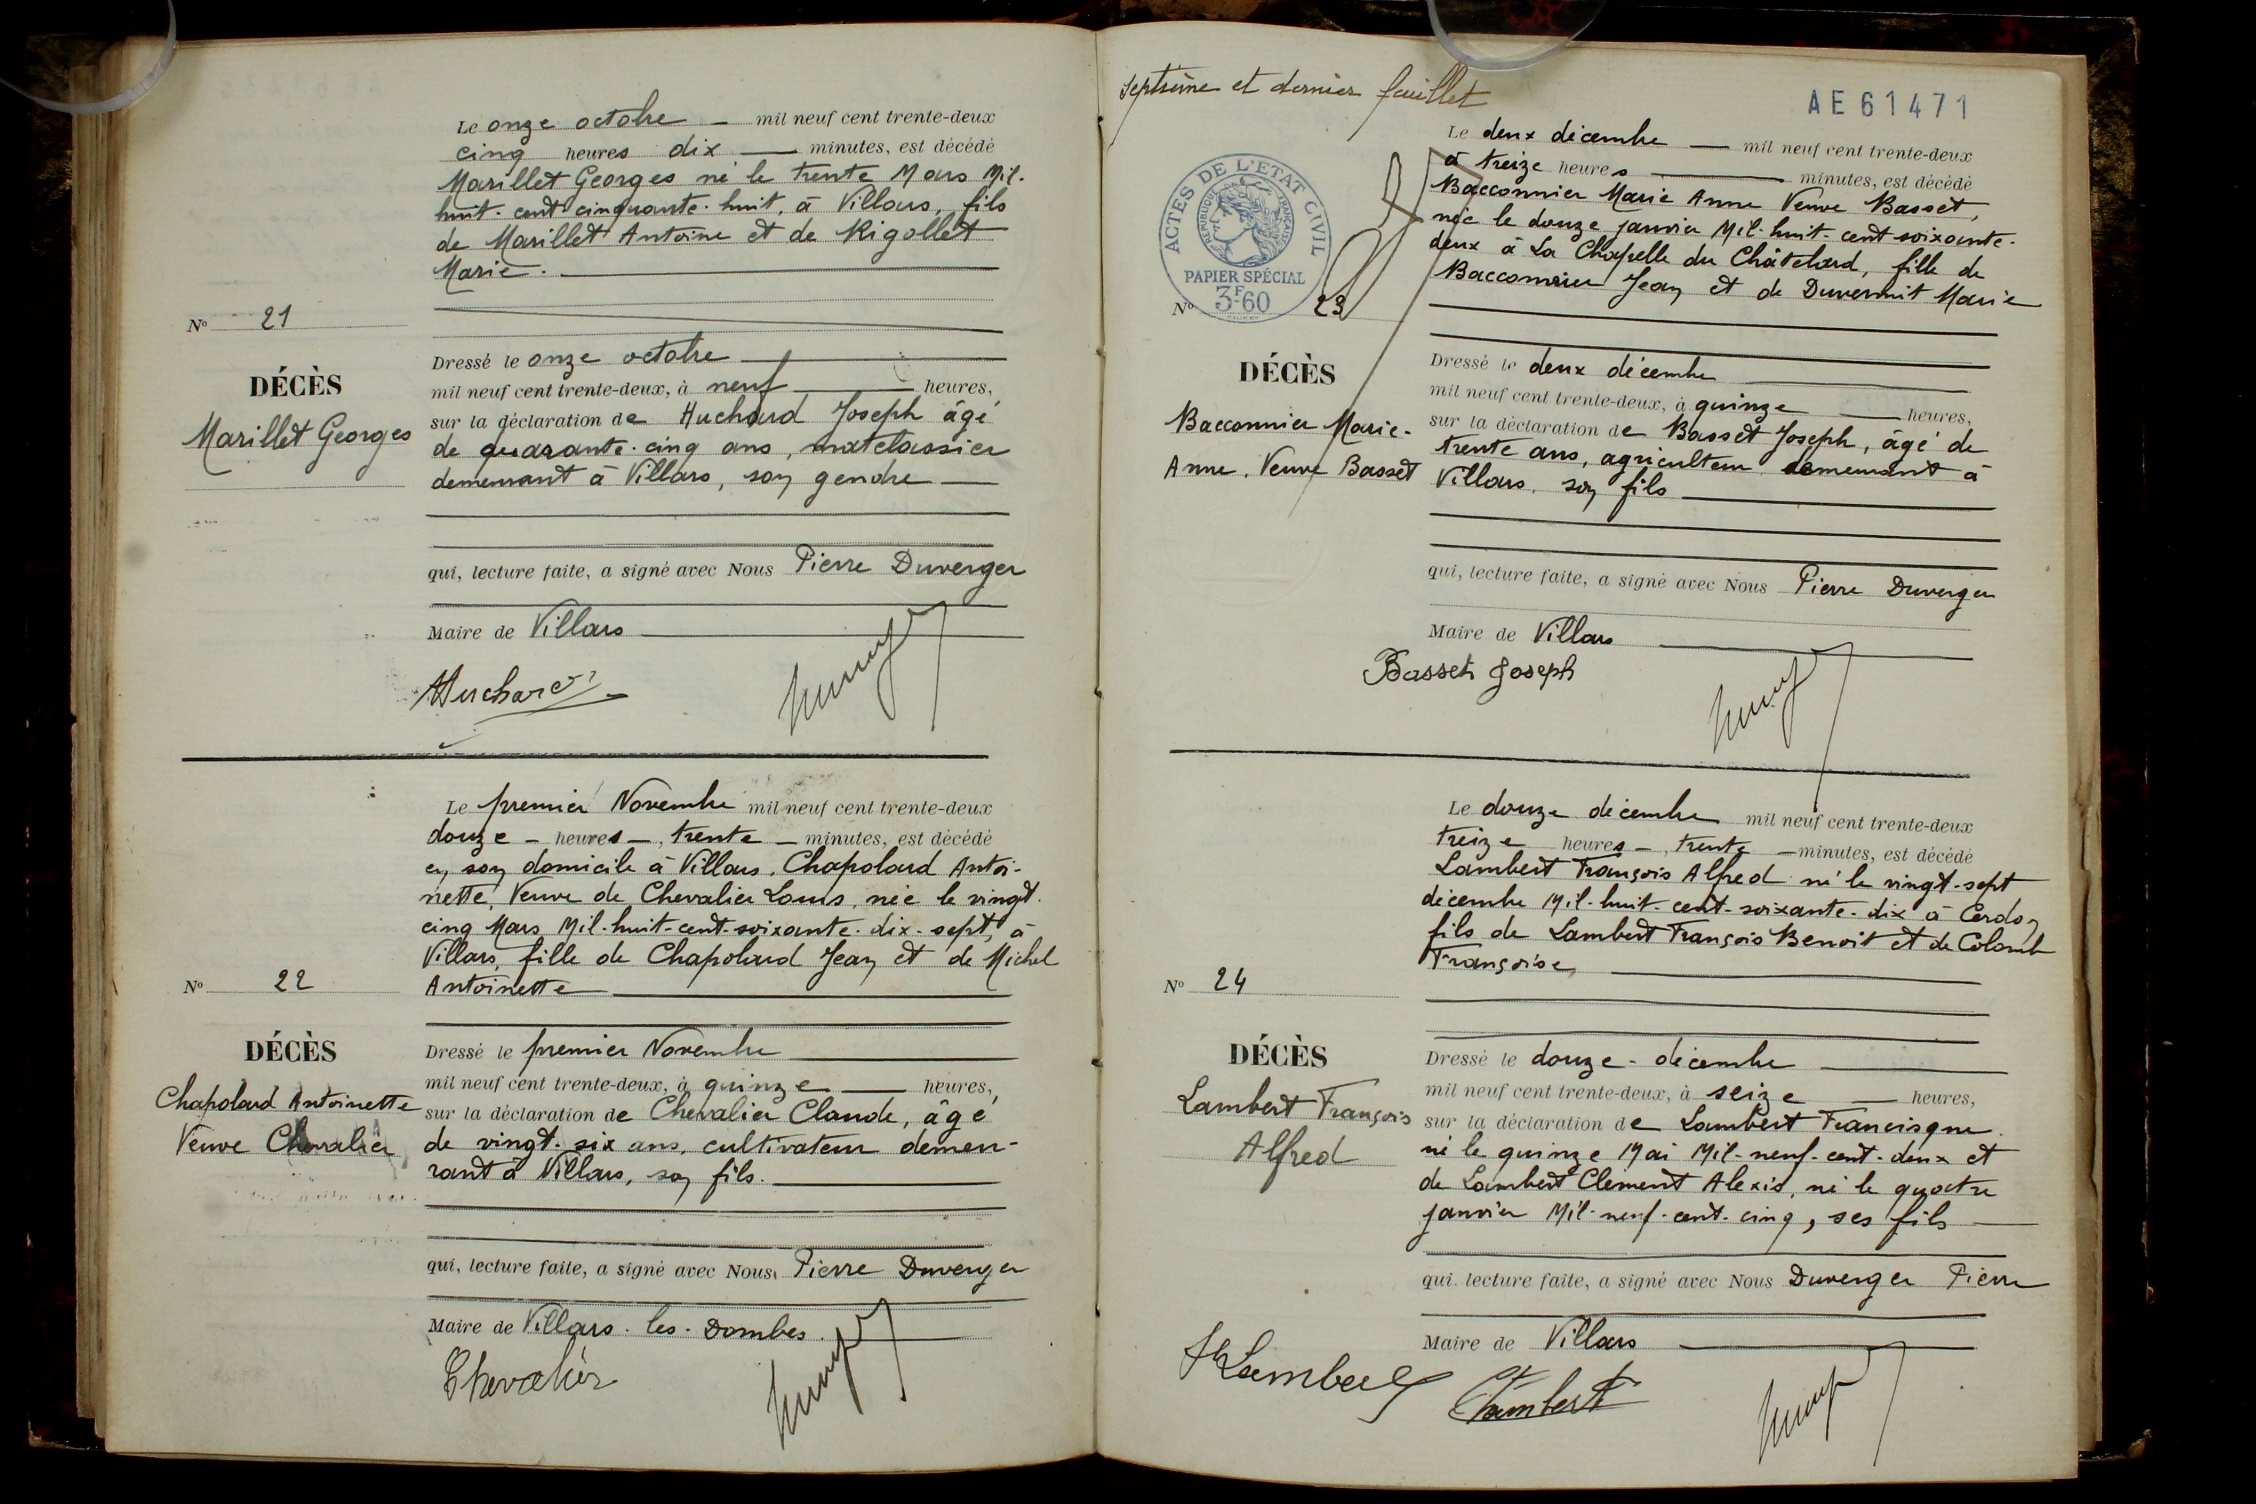 Le onze octobre — mil neuf cent trente-deux
cinq heures dix — minutes, est décédé
Marillet Georges né le trente Mars Mil-
huit-cent cinquante-huit, à Villars, fils
de Marillet Antoine et de Rigollet
Marie.
No 21
DÉCÈS
Marillet Georges
Dressé le onze octobre
mil neuf cent trente-deux, à neuf heures,
sur la déclaration de Huchard Joseph âgé
de quarante-cinq ans, matelassier
demeurant à Villars, son gendre
qui, lecture faite, a signé avec Nous Pierre Duverger
Maire de Villars
Huchard
Le premier Novembre mil neuf cent trente-deux
douze - heures - trente - minutes, est décédé
en son domicile à Villars, Chapolard Antoi-
nette, Veuve de Chevalier Louis, née le vingt-
cinq Mars Mil-huit-cent-soixante-dix-sept, à
Villars, fille de Chapolard Jean et de Michel
Antoinette
No 22
DÉCÈS
Chapolard Antoinette
Veuve Chevalier
Dressé le premier Novembre
mil neuf cent trente-deux, à quinze heures,
sur la déclaration de Chevalier Claude, âgé
de vingt-six ans, cultivateur demeu-
rant à Villars, son fils.
qui, lecture faite, a signé avec Nous Pierre Duverger
Maire de Villars-les-Dombes.
Chevalier
Septième et dernier feuillet
AE61471
ACTES DE L'ETAT CIVIL
REPUBLIQUE FRANÇAISE
PAPIER SPÉCIAL
3F60
Le deux décembre — mil neuf cent trente-deux
à treize heures — minutes, est décédé
Bacconnier Marie Anne Veuve Basset,
née le douze janvier Mil-huit-cent-soixante-
deux à La Chapelle du Châtelard, fille de
Bacconnier Jean et de Duvernit Marie
No 23
DÉCÈS
Bacconnier Marie-
Anne, Veuve Basset
Dressé le deux décembre
mil neuf cent trente-deux, à quinze heures,
sur la déclaration de Basset Joseph, âgé de
trente ans, agriculteur demeurant à
Villars, son fils
qui, lecture faite, a signé avec Nous Pierre Duverger
Maire de Villars
Basset Joseph
Le douze décembre mil neuf cent trente-deux
treize heures - trente - minutes, est décédé
Lambert François Alfred né le vingt-sept
décembre Mil-huit-cent-soixante-dix à Cerdon
fils de Lambert François Benoit et de Colomb
Françoise
No 24
DÉCÈS
Lambert François
Alfred
Dressé le douze-décembre
mil neuf cent trente-deux, à seize heures,
sur la déclaration de Lambert Francisque
né le quinze Mai Mil-neuf-cent-deux et
de Lambert Clément Alexis, né le quatre
janvier Mil-neuf-cent-cinq, ses fils
qui, lecture faite, a signé avec Nous Duverger Pierre
Maire de Villars
Lambert
Lambert